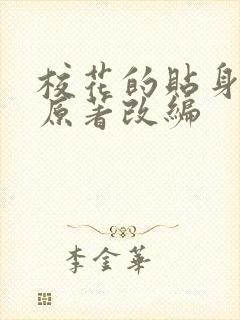 校花的贴身
原著改编
李金華